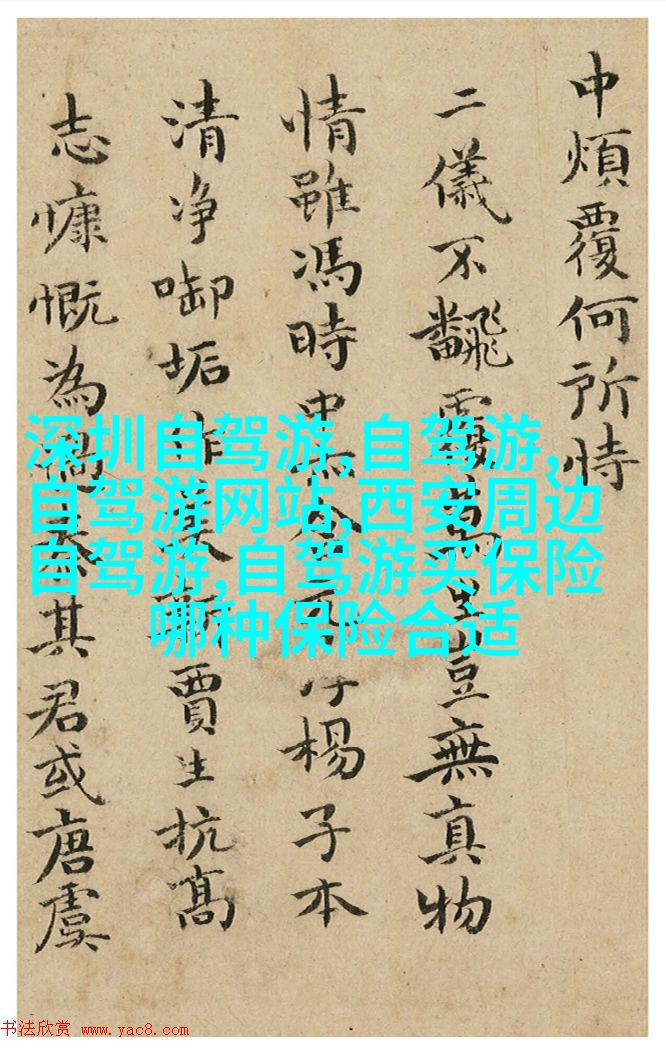 中煩覆何所恃
二儀不飜覆萬生豈無真物
情雖馮時中
楊子本
清净啣垢
賈生抗髙
志慷慨為
其君或唐虞
深圳自驾游,自驾游,
自驾游网站,西安周边
自驾游,自驾游买保险
哪种保险合适
书法欣赏 www.yac8.com